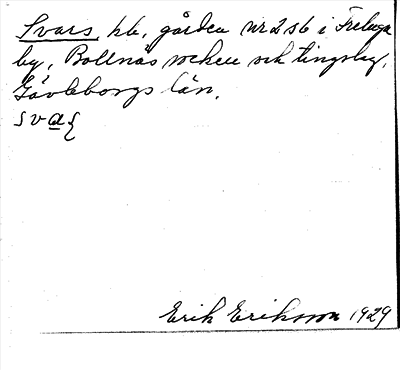 Svars, hb, gården nr 2 s6 i Freluga
by, Bollnäs socken och tingslag,
Gävleborgs län.
svaʂ
Erik Eriksson 1929